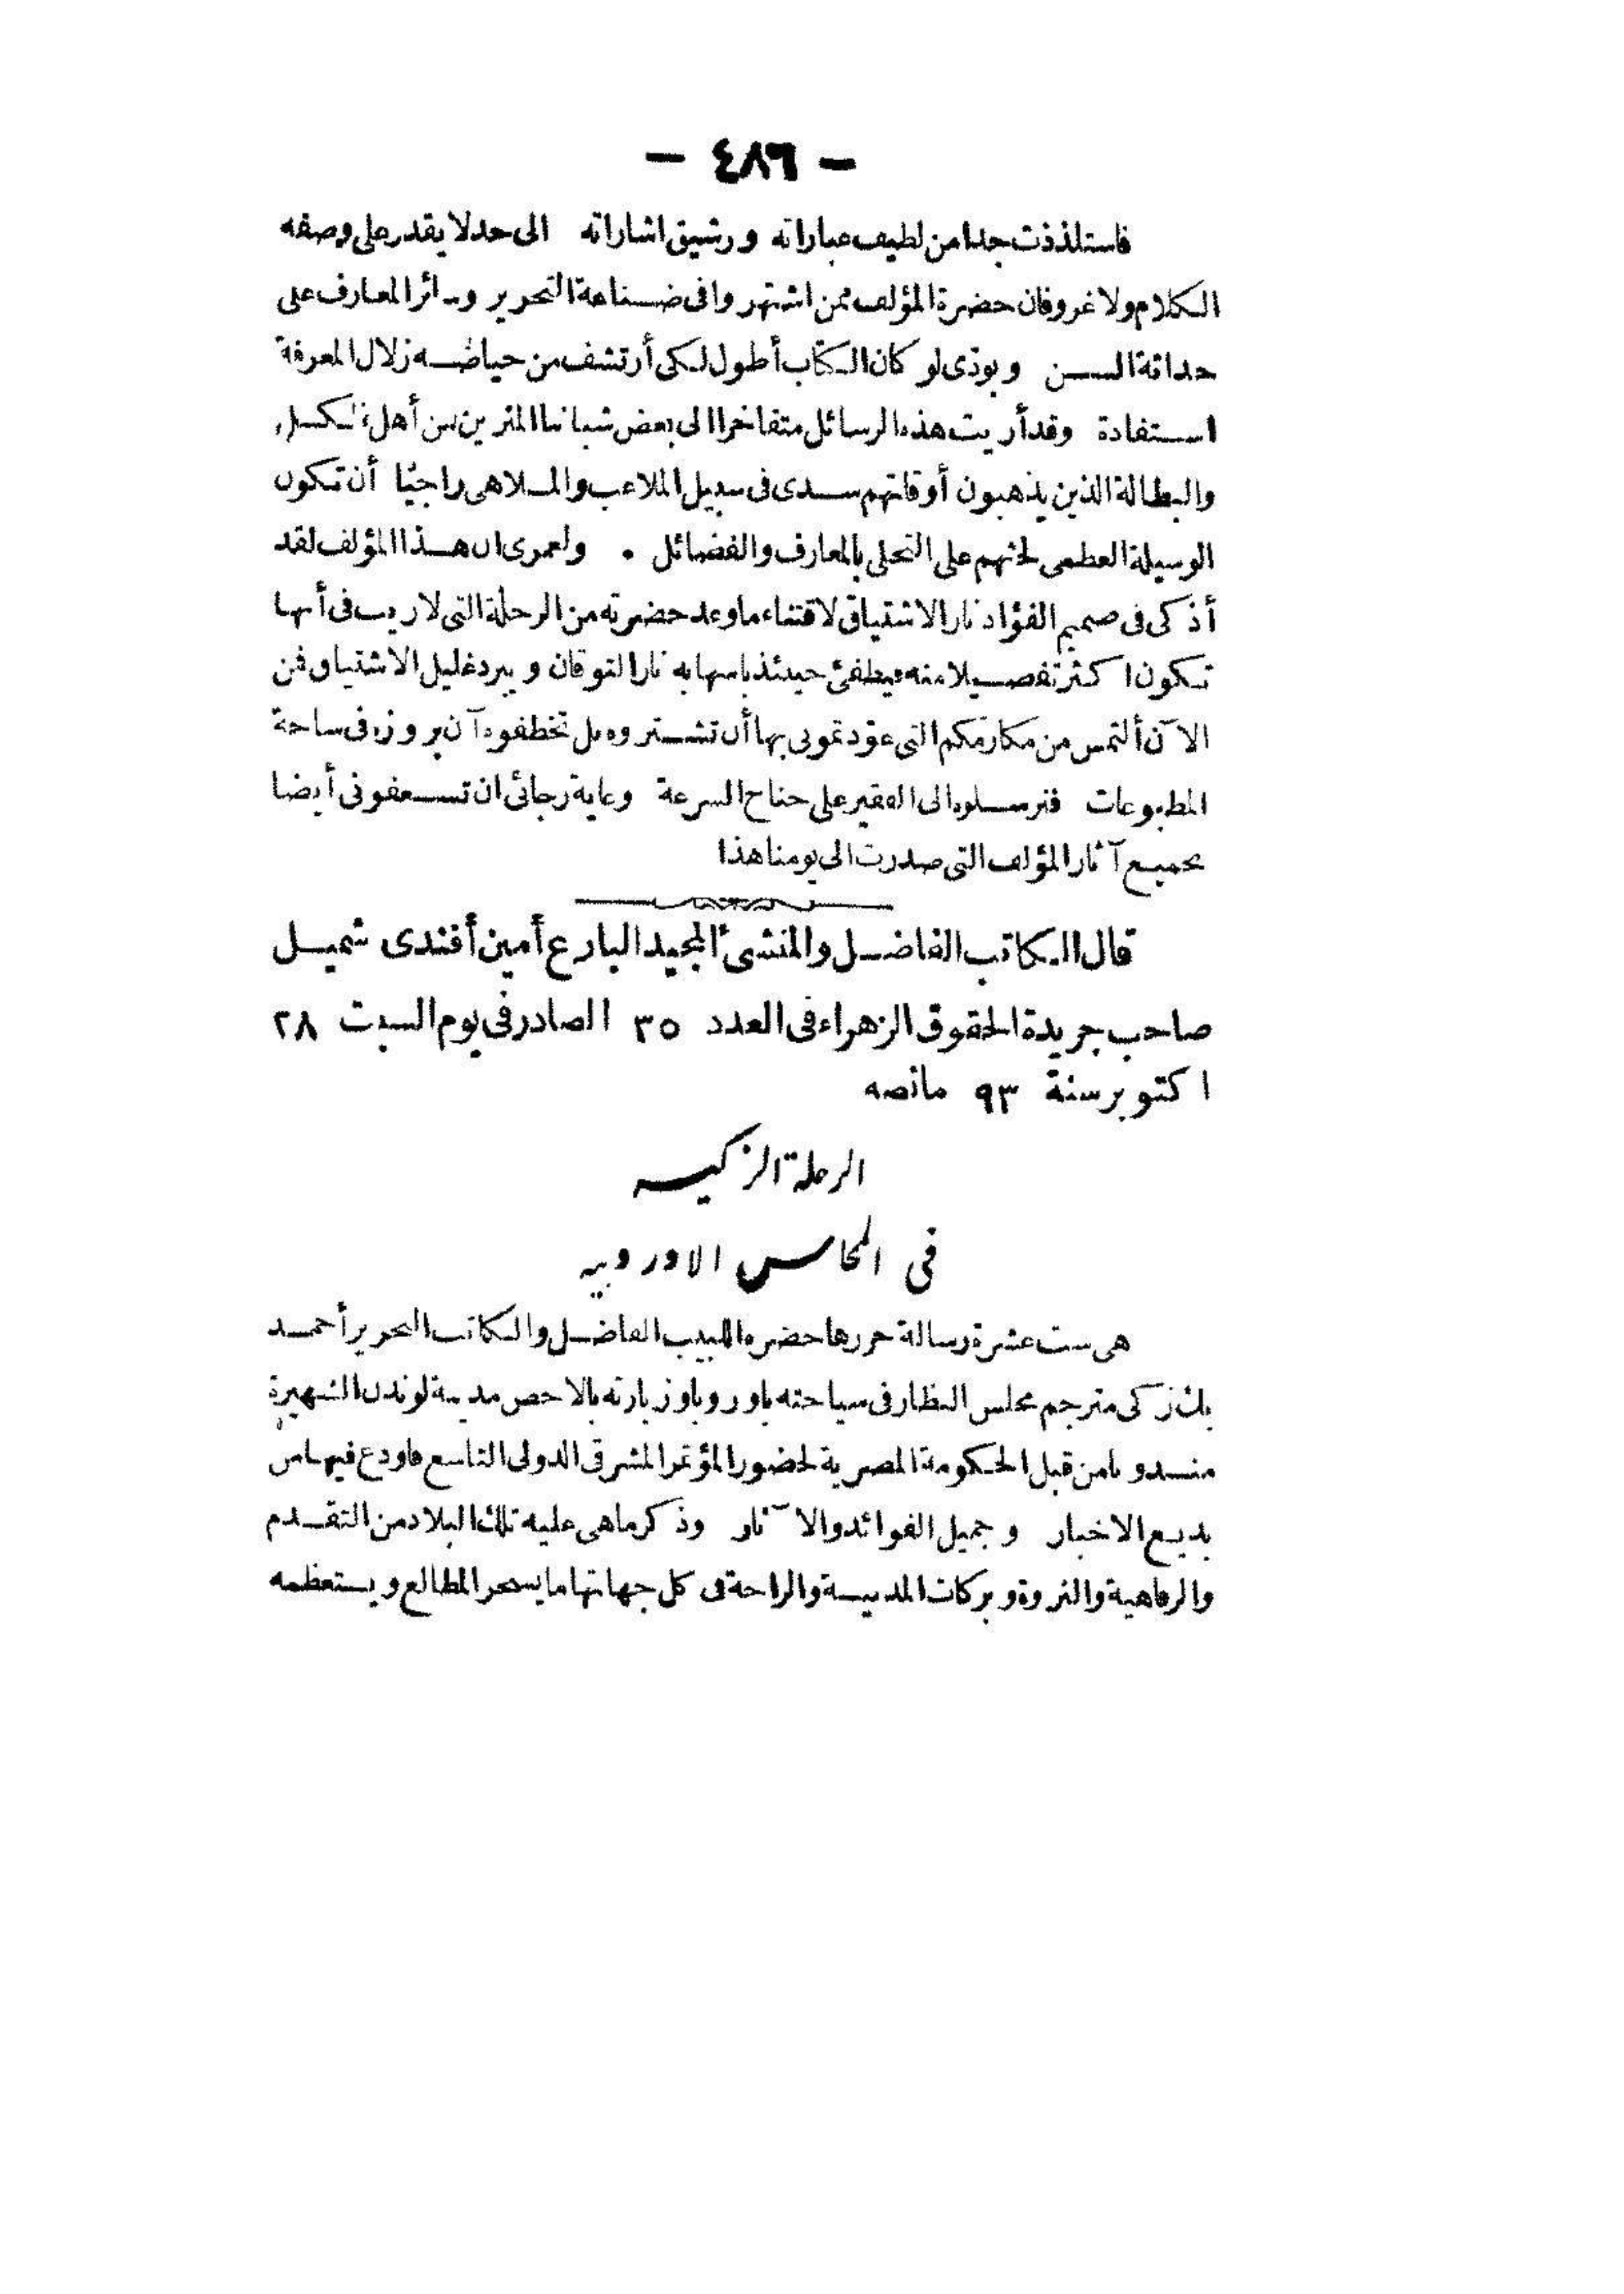 — ٤٨٦ —
فاستلذذت جدا من لطيف عباراته ورشيق اشاراته الى حد لا يقدر على وصفه
الكلام ولا غرو فان حضرة المؤلف ممن اشتهروا فى ضناعة التحرير وسائر المعارف على
حداثة السن وبودّى لو كان الكتاب أطول لكى أرتشف من حياضه زلال المعرفة
استفادة وقد أريت هذه الرسائل متفاخرا الى بعض شباننا المثرين من أهل الكسل
والبطالة الذين يذهبون أوقاتهم سدى فى سبيل الملاعب والملاهى راجيًا أن تكون
الوسيلة العظمى لحثهم على التحلى بالمعارف والفضائل . ولعمرى ان هذا المؤلف لقد
أذكى فى صميم الفؤاد نار الاشتياق لاقتناء ما وعد حضرته من الرحلة التى لا ريب فى أنها
تكون اكثر تفصيلا منه فيطفئ حينئذ باسهابه نار التوقان ويبرد غليل الاشتياق فمن
الآن ألتمس من مكارمكم التى عوّدتمونى بها أن تشتروه بل تخطفوه آن بروزه فى ساحة
المطبوعات فترسلوه الى الفقير على جناح السرعة وغاية رجائى ان تسعفونى أيضا
بجميع آثار المؤلف التى صدرت الى يومنا هذا
قال الكاتب الفاضل والمنشئ المجيد البارع أمين أفندى شميل
صاحب جريدة الحقوق الزهراء فى العدد ٣٥ الصادر فى يوم السبت ٢٨
اكتوبر سنة ٩٣ مانصه
الرحلة الزكيه
فى المحاسن الاوروبيه
هى ست عشرة رسالة حررها حضرة اللبيب الفاضل والكاتب النحرير أحمد
بك زكى مترجم مجلس النظار فى سياحته باوروبا وزيارته بالاخص مدينة لوندن الشهيرة
مندوبا من قبل الحكومة المصرية لحضور المؤتمر المشرقى الدولى التاسع فاودع فيها من
بديع الاخبار وجميل الفوائد والآثار وذكر ما هى عليه تلك البلاد من التقدم
والرفاهية والثروة وبركات المدنية والراحة فى كل جهاتها ما يسحر المطالع ويستعظمه